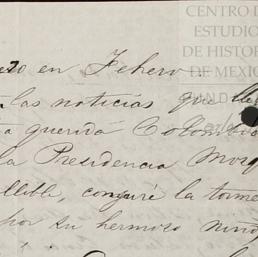 CENTRO D
ESTUDIO
DE HISTOR
DE MEXIC
en Febero
las noticias que lle
querida Colombia
la Presidencia Mosq
llible, conjuré la torme
por su hermoso niño